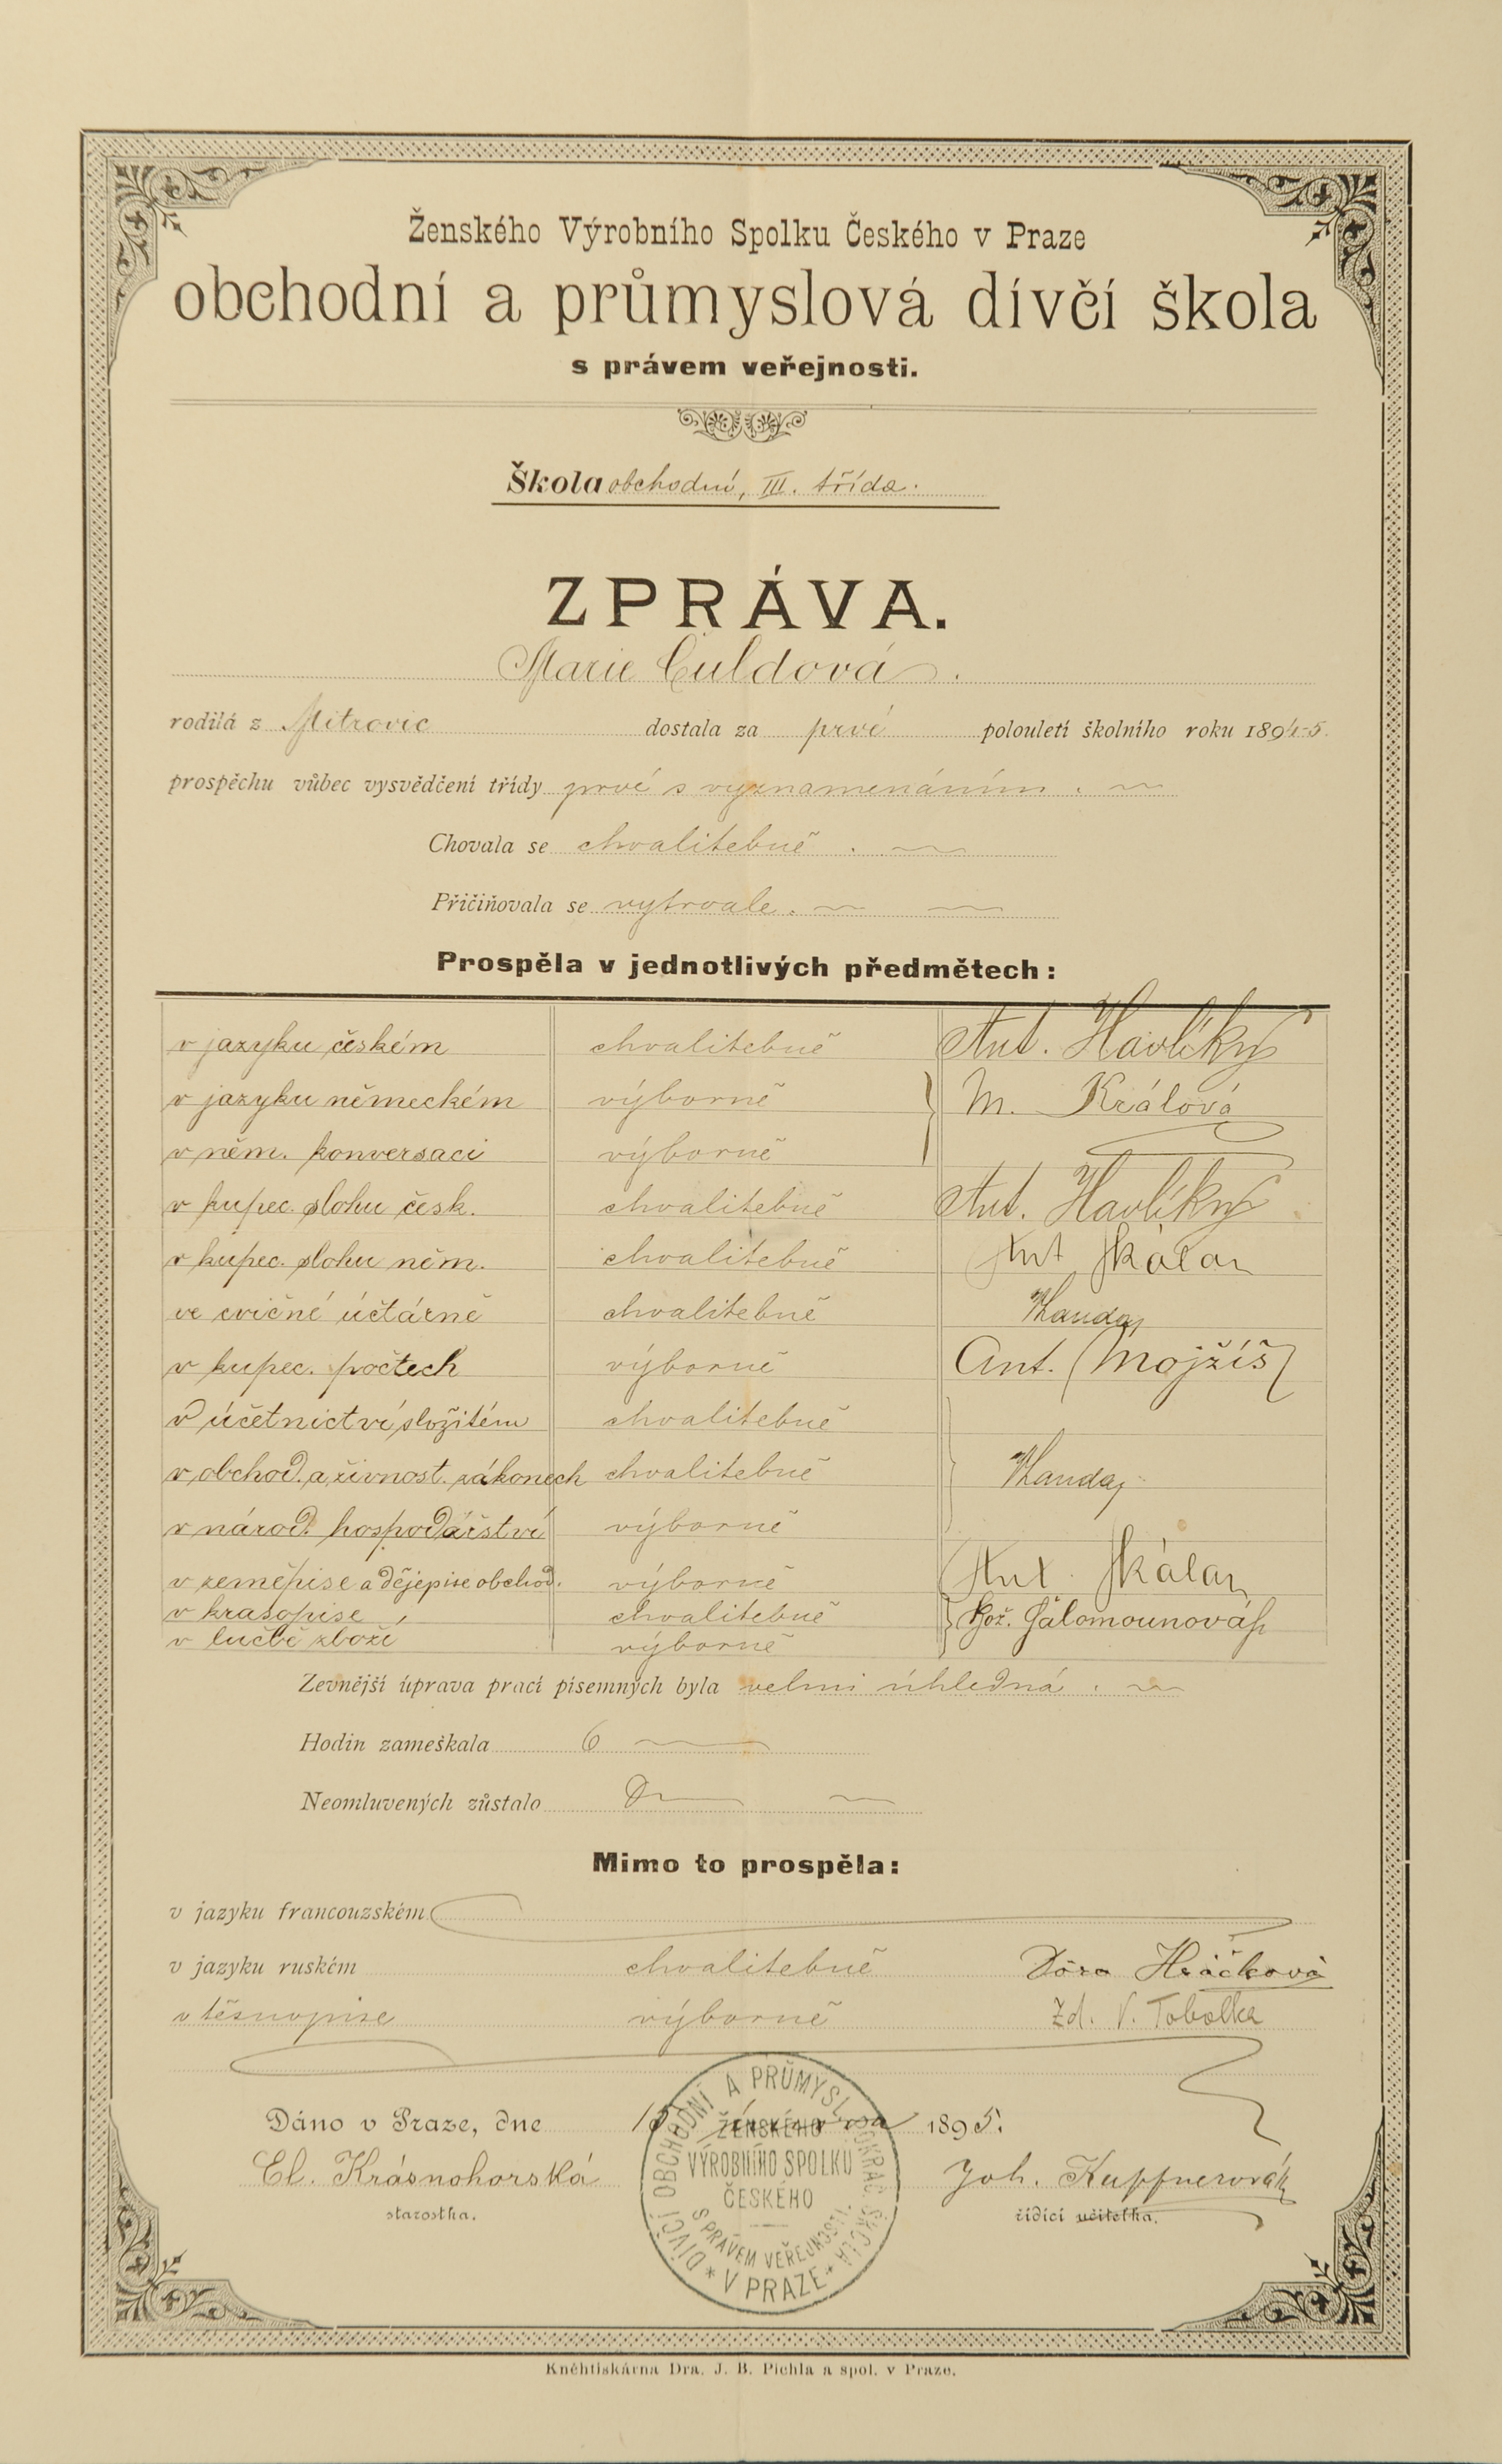 Ženského Výrobního Spolku Českého v Praze
obchodní a průmyslová dívčí škola
s právem veřejnosti.
Škola obchodní, III. třída.
ZPRÁVA.
Marie Culdová.
rodilá z Mitrovic dostala za prvé polouletí školního roku 1894-5.
prospěchu vůbec vysvědčení třídy prvé s vyznamenáním.
Chovala se chvalitebně.
Přičiňovala se vytrvale.
Prospěla v jednotlivých předmětech:
v jazyku českém chvalitebně Ant. Havlíký
v jazyku německém výborně M. Králová
v něm. konversaci výborně
v kupec. slohu česk. chvalitebně Ant. Havlíký
v kupec. slohu něm. chvalitebně Ant Skálan
ve cvičné účtárně chvalitebně
v kupec. počtech výborně Ant. Mojžíš
v účetnictví složitém chvalitebně
v obchod. a živnost. zákonech chvalitebně
v národ. hospodářství výborně
v zeměpise a dějepise obchod. výborně Ant. Skálan
v krasopise chvalitebně Bož. Šalomounová
v lučbě zboží výborně
Zevnější úprava prací písemných byla velmi úhledná.
Hodin zameškala 6
Neomluvených zůstalo 0
Mimo to prospěla:
v jazyku francouzském
v jazyku ruském chvalitebně Dora Hráčková
v těsnopise výborně Zd. V. Tobolka
Dáno v Praze, dne 15 února 1895.
El. Krásnohorská Joh. Kuffnerová
starostka. řídící učitelka.
DÍVČÍ OBCHODNÍ A PRŮMYSL. POKRAČ. ŠKOLA
ŽENSKÉHO
VÝROBNÍHO SPOLKU
ČESKÉHO
S PRÁVEM VEŘEJNOSTI.
* V PRAZE *
Kněhtiskárna Dra. J. B. Pichla a spol. v Praze.